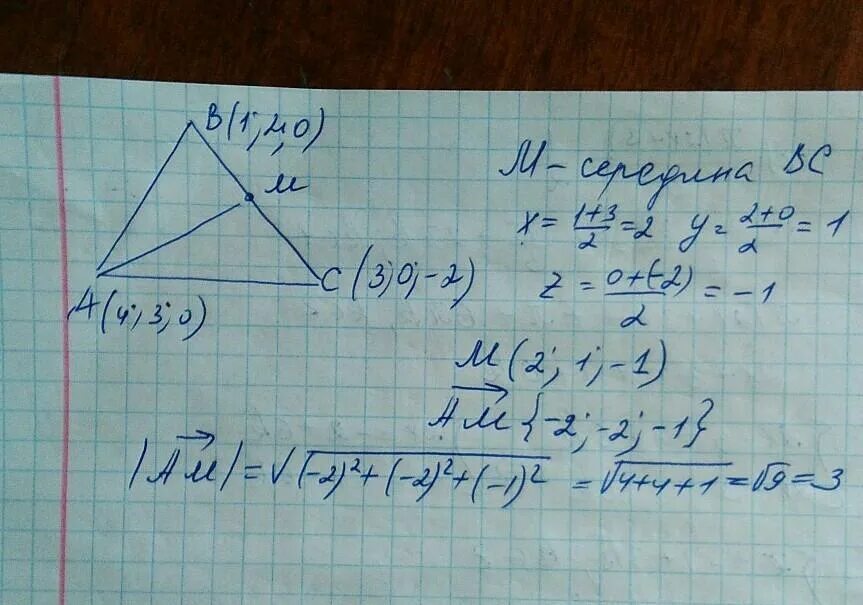 B(1; 2; 0)
M
C (3; 0; -2)
A (4; 3; 0)
M - середина BC
x = \frac{1+3}{2} = 2 y = \frac{2+0}{2} = 1
z = \frac{0+(-2)}{2} = -1
M (2; 1; -1)
\overrightarrow{AM} {-2; -2; -1}
|\overrightarrow{AM}| = \sqrt{(-2)^2+(-2)^2+(-1)^2} = \sqrt{4+4+1} = \sqrt{9} = 3